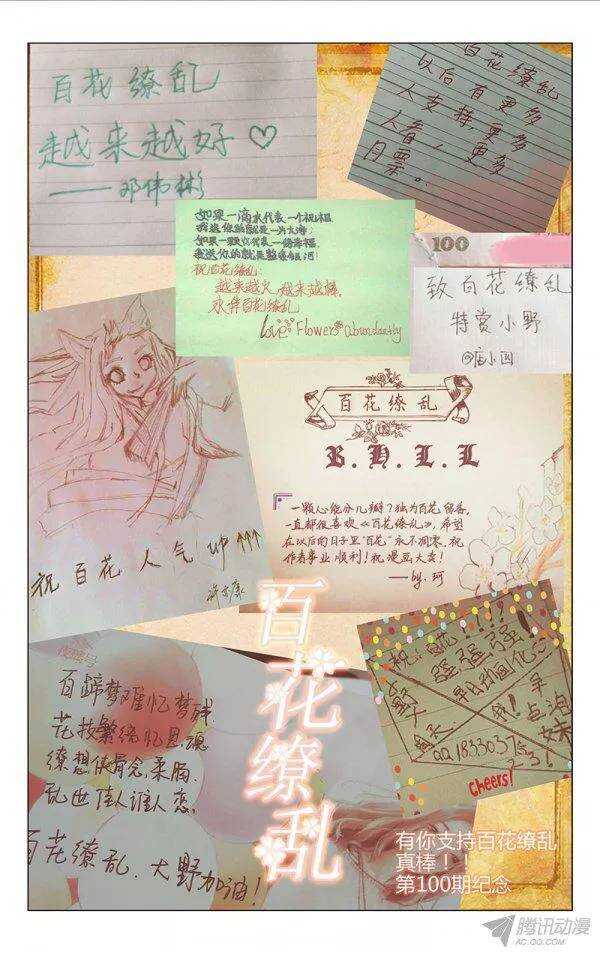 百花缭乱
越来越好♡
——邓伟彬
百花缭乱
以后有更多
人支持,更多
人看,更多
月票。
如果一滴水代表一个祝福
我送你的就是一片大海;
我送你的就是整条银河
祝百花缭乱:
越来越火,越来越棒.
永伴百花缭乱
love Flowers abundantly
100
致百花缭乱
特赏小野
@庙小四
百花缭乱
B.H.L.L
一颗心能分几瓣?独为百花留香。
一直都很喜欢《百花缭乱》,希望
在以后的日子里“百花”永不凋零。祝
作者事业顺利!祝漫画大卖!
——by.珂
祝百花人气up↑↑↑
百花缭乱
强强强
Cheers!
百蹄梦难忆梦残
花枝繁绪忆思魂
缭想侠骨念柔肠
乱世佳人谁人恋
百花缭乱,大野加油!
有你支持百花缭乱
真棒!!
第100期纪念
腾讯动漫
AC.QQ.COM